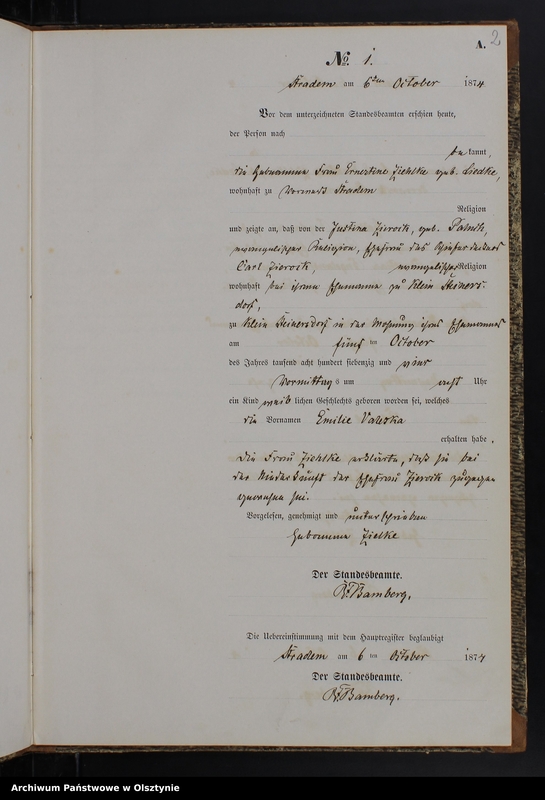 A. 2
No. 1.
Stradem am 6ten October 1874
Vor dem unterzeichneten Standesbeamten erschien heute,
der Person nach
bekannt,
die Hebamme Frau Ernestine Ziehlke geb. Liedke,
wohnhaft zu Vorwerk Stradem
Religion
und zeigte an, daß von der Justina Zierock, geb.
evangelischer Religion, Ehefrau des
Carl Zierock, evangelischer Religion
wohnhaft bei ihrem Ehemanne zu Klein Steiners-
dorf,
zu Klein Steinersdorf in der Wohnung ihres Ehemannes
am fünf ten October
des Jahres tausend acht hundert siebenzig und vier
Vormittags um acht Uhr
ein Kind weib lichen Geschlechts geboren worden sei, welches
die Vornamen Emilie Valeska
erhalten habe.
Die Frau Ziehlke erklärte, daß sie bei
der Niederkunft der Ehefrau Zierock zugegen
gewesen sei.
Vorgelesen, genehmigt und unterschrieben
Hebamme Zielke
Der Standesbeamte.
R. Bamberg.
Die Uebereinstimmung mit dem Hauptregister beglaubigt
Stradem am 6 ten October 1874
Der Standesbeamte.
R. Bamberg.
Archiwum Państwowe w Olsztynie